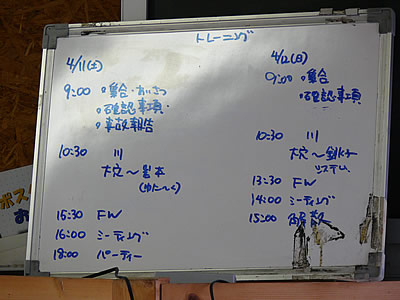 トレーニング
4/11(土)
9:00 ○集合・あいさつ
○確認事項
○事故報告
10:30 川
大穴〜岩本
15:30 FW
16:00 ミーティング
18:00 パーティー
4/12(日)
9:00 ○集合
○確認事項
10:30 川
大穴〜銚子
システム
13:30 FW
14:00 ミーティング
15:00 解散